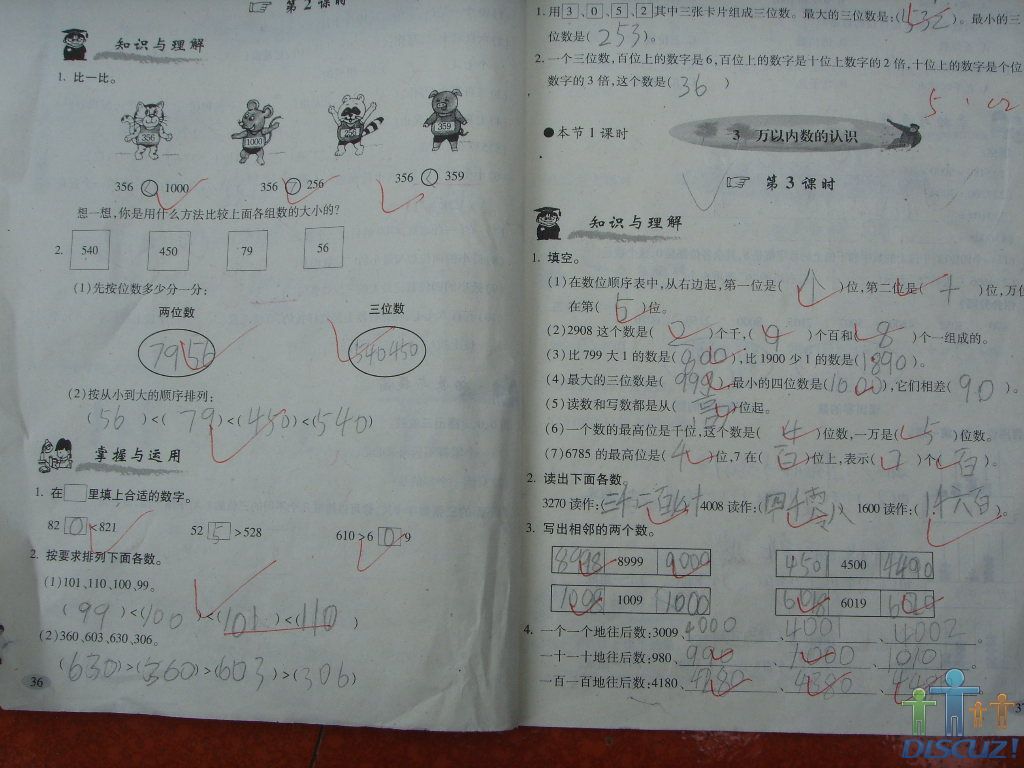 第2课时
知识与理解
1. 比一比。
356 1000 256 359
356 < 1000 356 > 256 356 < 359
想一想,你是用什么方法比较上面各组数的大小的?
2. 540 450 79 56
(1)先按位数多少分一分:
两位数 三位数
79 56 540 450
(2)按从小到大的顺序排列:
(56)<(79)<(450)<(540)
掌握与运用
1. 在□里填上合适的数字。
82 0 <821 52 5 >528 610>6 0 9
2. 按要求排列下面各数。
(1)101、110、100、99。
(99)<(100)<(101)<(110)
(2)360、603、630、306。
(630)>(360)>(603)>(306)
36
1. 用 3 、 0 、 5 、 2 其中三张卡片组成三位数。最大的三位数是:(532)。最小的三
位数是(253)。
2. 一个三位数,百位上的数字是6,百位上的数是十位上数字的2倍,十位上的数字是个位
数字的3倍,这个数是(36)
●本节1课时
3 万以内数的认识
第3课时
知识与理解
1. 填空。
(1)在数位顺序表中,从右边起,第一位是(个)位,第二位是(十)位,万位
在第(5)位。
(2)2908这个数是(2)个千,(9)个百和(8)个一组成的。
(3)比799大1的数是(800),比1900少1的数是(1890)。
(4)最大的三位数是(999),最小的四位数是(1000),它们相差(90)。
(5)读数和写数都是从(高)位起。
(6)一个数的最高位是千位,这个数是(4)位数,一万是(5)位数。
(7)6785的最高位是(千)位,7在(百)位上,表示(7)个(百)。
2. 读出下面各数。
3270读作:( ) 4008读作:(四千零八) 1600读作:(1千六百)。
3. 写出相邻的两个数。
8998 8999 9000 4501 4500 4490
1008 1009 1000 6018 6019 6020
4. 一个一个地往后数:3009、4000、4001、4002。
一十一十地往后数:980、990、1000、1010。
一百一百地往后数:4180、4280、4380、
37
DISCUZ!